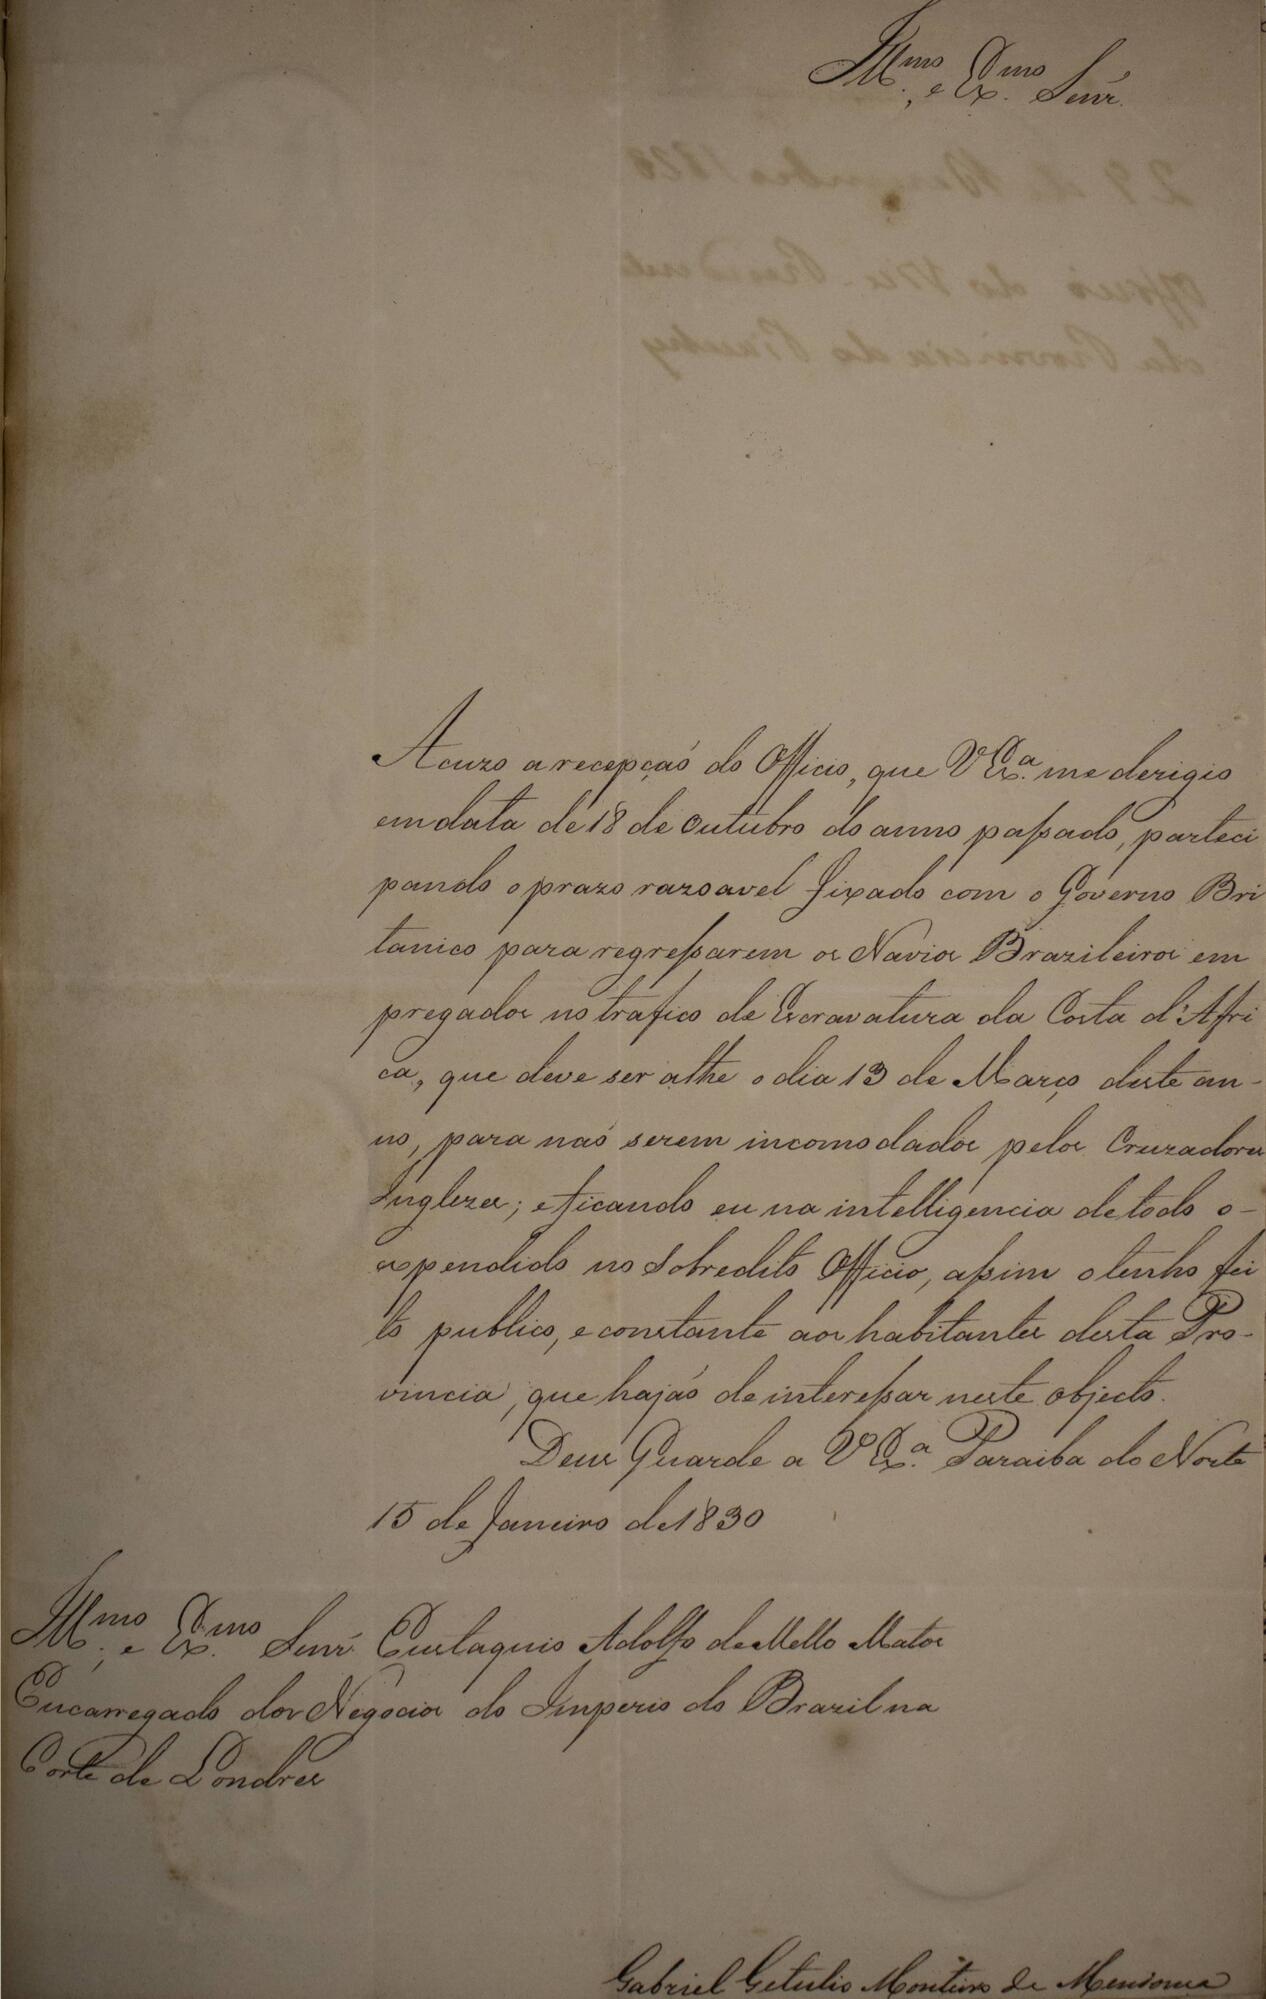 Illmo. e Exmo. Senr.
Acuzo a recepção do Officio, que V Exa. me derigio
em data de 18 de Outubro do anno passado, parteci
pando o prazo razoavel fixado com o Governo Bri
tanico para regressarem os Navios Brazileiros em
pregados no trafico de Escravatura da Costa d'Afri
ca, que deve ser athe o dia 13 de Março deste an-
no, para naó serem incomodados pelos Cruzadores
Inglezes; e ficando eu na intelligencia de todo o-
expendido no sobredito Officio, assim o tenho fei
to publico, e constante aos habitantes desta Pro-
vincia, que hajaó de interessar neste objecto.
Deus Guarde a V Exa. Paraiba do Norte
15 de Janeiro de 1830
Illmo. e Exmo. Senr. Eustaquio Adolfo de Mello Matos
Encarregado dos Negocios do Imperio do Brazil na
Corte de Londres
Gabriel Getulio Monteiro de Mendonça